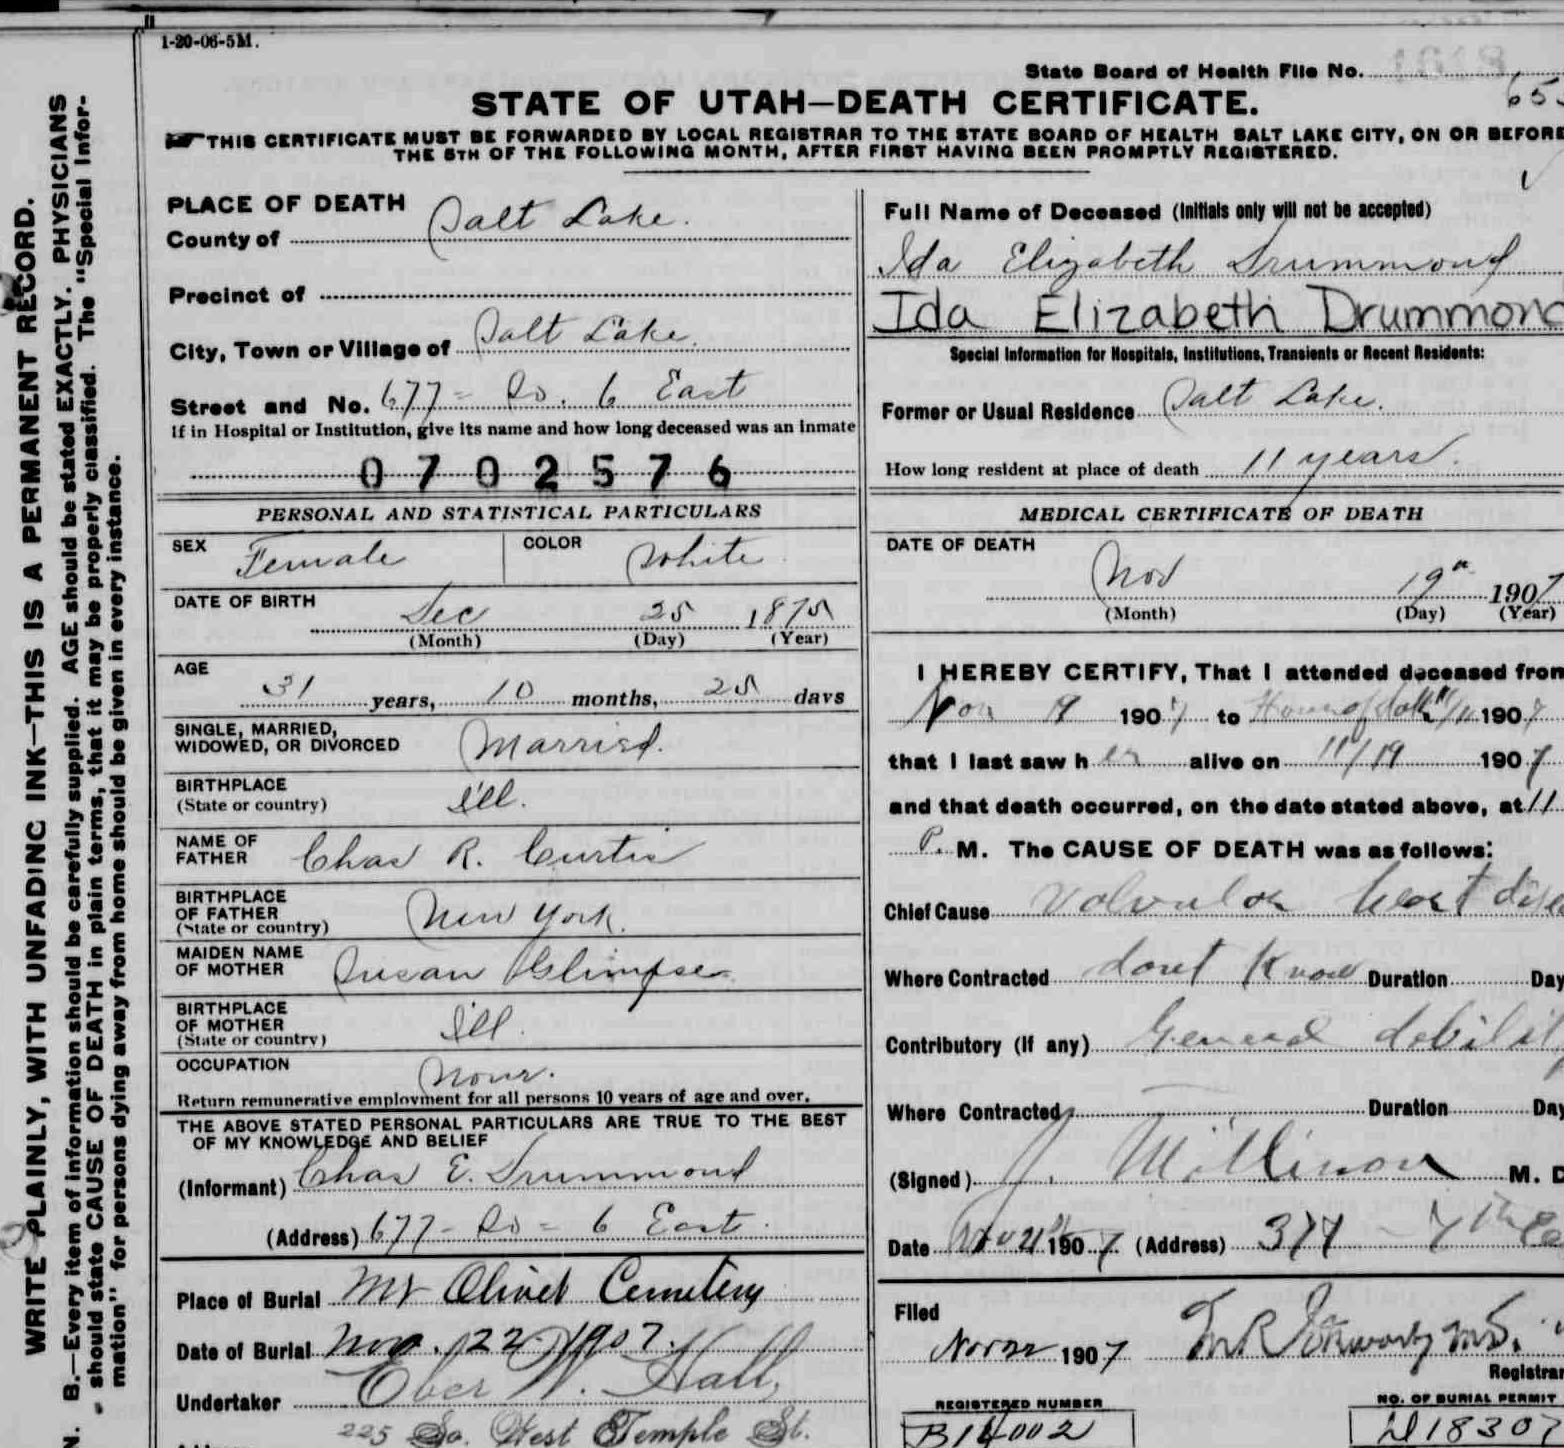 1-20-06-5M.
State Board of Health File No.
STATE OF UTAH—DEATH CERTIFICATE.
THIS CERTIFICATE MUST BE FORWARDED BY LOCAL REGISTRAR TO THE STATE BOARD OF HEALTH SALT LAKE CITY, ON OR BEFORE
THE 5TH OF THE FOLLOWING MONTH, AFTER FIRST HAVING BEEN PROMPTLY REGISTERED.
WRITE PLAINLY, WITH UNFADING INK—THIS IS A PERMANENT RECORD.
N. B.—Every item of information should be carefully supplied. AGE should be stated EXACTLY. PHYSICIANS
should state CAUSE OF DEATH in plain terms, that it may be properly classified. The "Special Infor-
mation" for persons dying away from home should be given in every instance.
PLACE OF DEATH
County of Salt Lake.
Precinct of
City, Town or Village of Salt Lake.
Street and No. 677 - So. 6 East
If in Hospital or Institution, give its name and how long deceased was an Inmate
0702576
PERSONAL AND STATISTICAL PARTICULARS
SEX Female COLOR White
DATE OF BIRTH Dec 25 1875
(Month) (Day) (Year)
AGE
31 years, 10 months, 25 days
SINGLE, MARRIED,
WIDOWED, OR DIVORCED Married.
BIRTHPLACE
(State or country) Ill.
NAME OF
FATHER Chas R. Curtis
BIRTHPLACE
OF FATHER
(State or country) New York.
MAIDEN NAME
OF MOTHER Susan Glimpse
BIRTHPLACE
OF MOTHER
(State or country) Ill.
OCCUPATION None.
Return remunerative employment for all persons 10 years of age and over.
THE ABOVE STATED PERSONAL PARTICULARS ARE TRUE TO THE BEST
OF MY KNOWLEDGE AND BELIEF
(Informant) Chas E. Drummond
(Address) 677 - So - 6 East.
Place of Burial Mt Olivet Cemetery
Date of Burial Nov. 22 1907.
Undertaker Eber W. Hall,
225 So. West Temple St.
Full Name of Deceased (Initials only will not be accepted)
Ida Elizabeth Drummond
Ida Elizabeth Drummond
Special Information for Hospitals, Institutions, Transients or Recent Residents:
Former or Usual Residence Salt Lake.
How long resident at place of death 11 years.
MEDICAL CERTIFICATE OF DEATH
DATE OF DEATH
Nov 19 1907
(Month) (Day) (Year)
I HEREBY CERTIFY, That I attended deceased from
Nov 19 1907 to 1907
that I last saw her alive on 11/19 1907
and that death occurred, on the date stated above, at 11
P. M. The CAUSE OF DEATH was as follows:
Chief Cause Valvular heart
Where Contracted dont Know Duration Day
Contributory (If any) General debility
Where Contracted Duration Day
(Signed) J. M. D
Date Nov 21 1907 (Address) 377 - 7th Ea
Filed
1907
Registrar
REGISTERED NUMBER
NO. OF BURIAL PERMIT
D18307